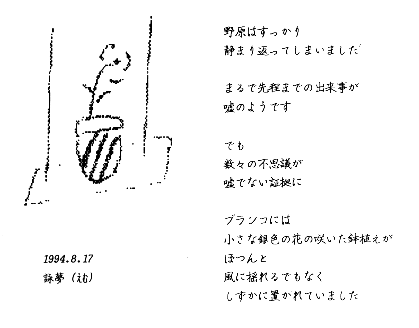 野原はすっかり
静まり返ってしまいました
まるで先程までの出来事が
嘘のようです
でも
数々の不思議が
嘘でない証拠に
ブランコには
小さな銀色の花の咲いた鉢植えが
ぽつんと
風に揺れるでもなく
しずかに置かれていました
1994.8.17
詠夢（えむ）